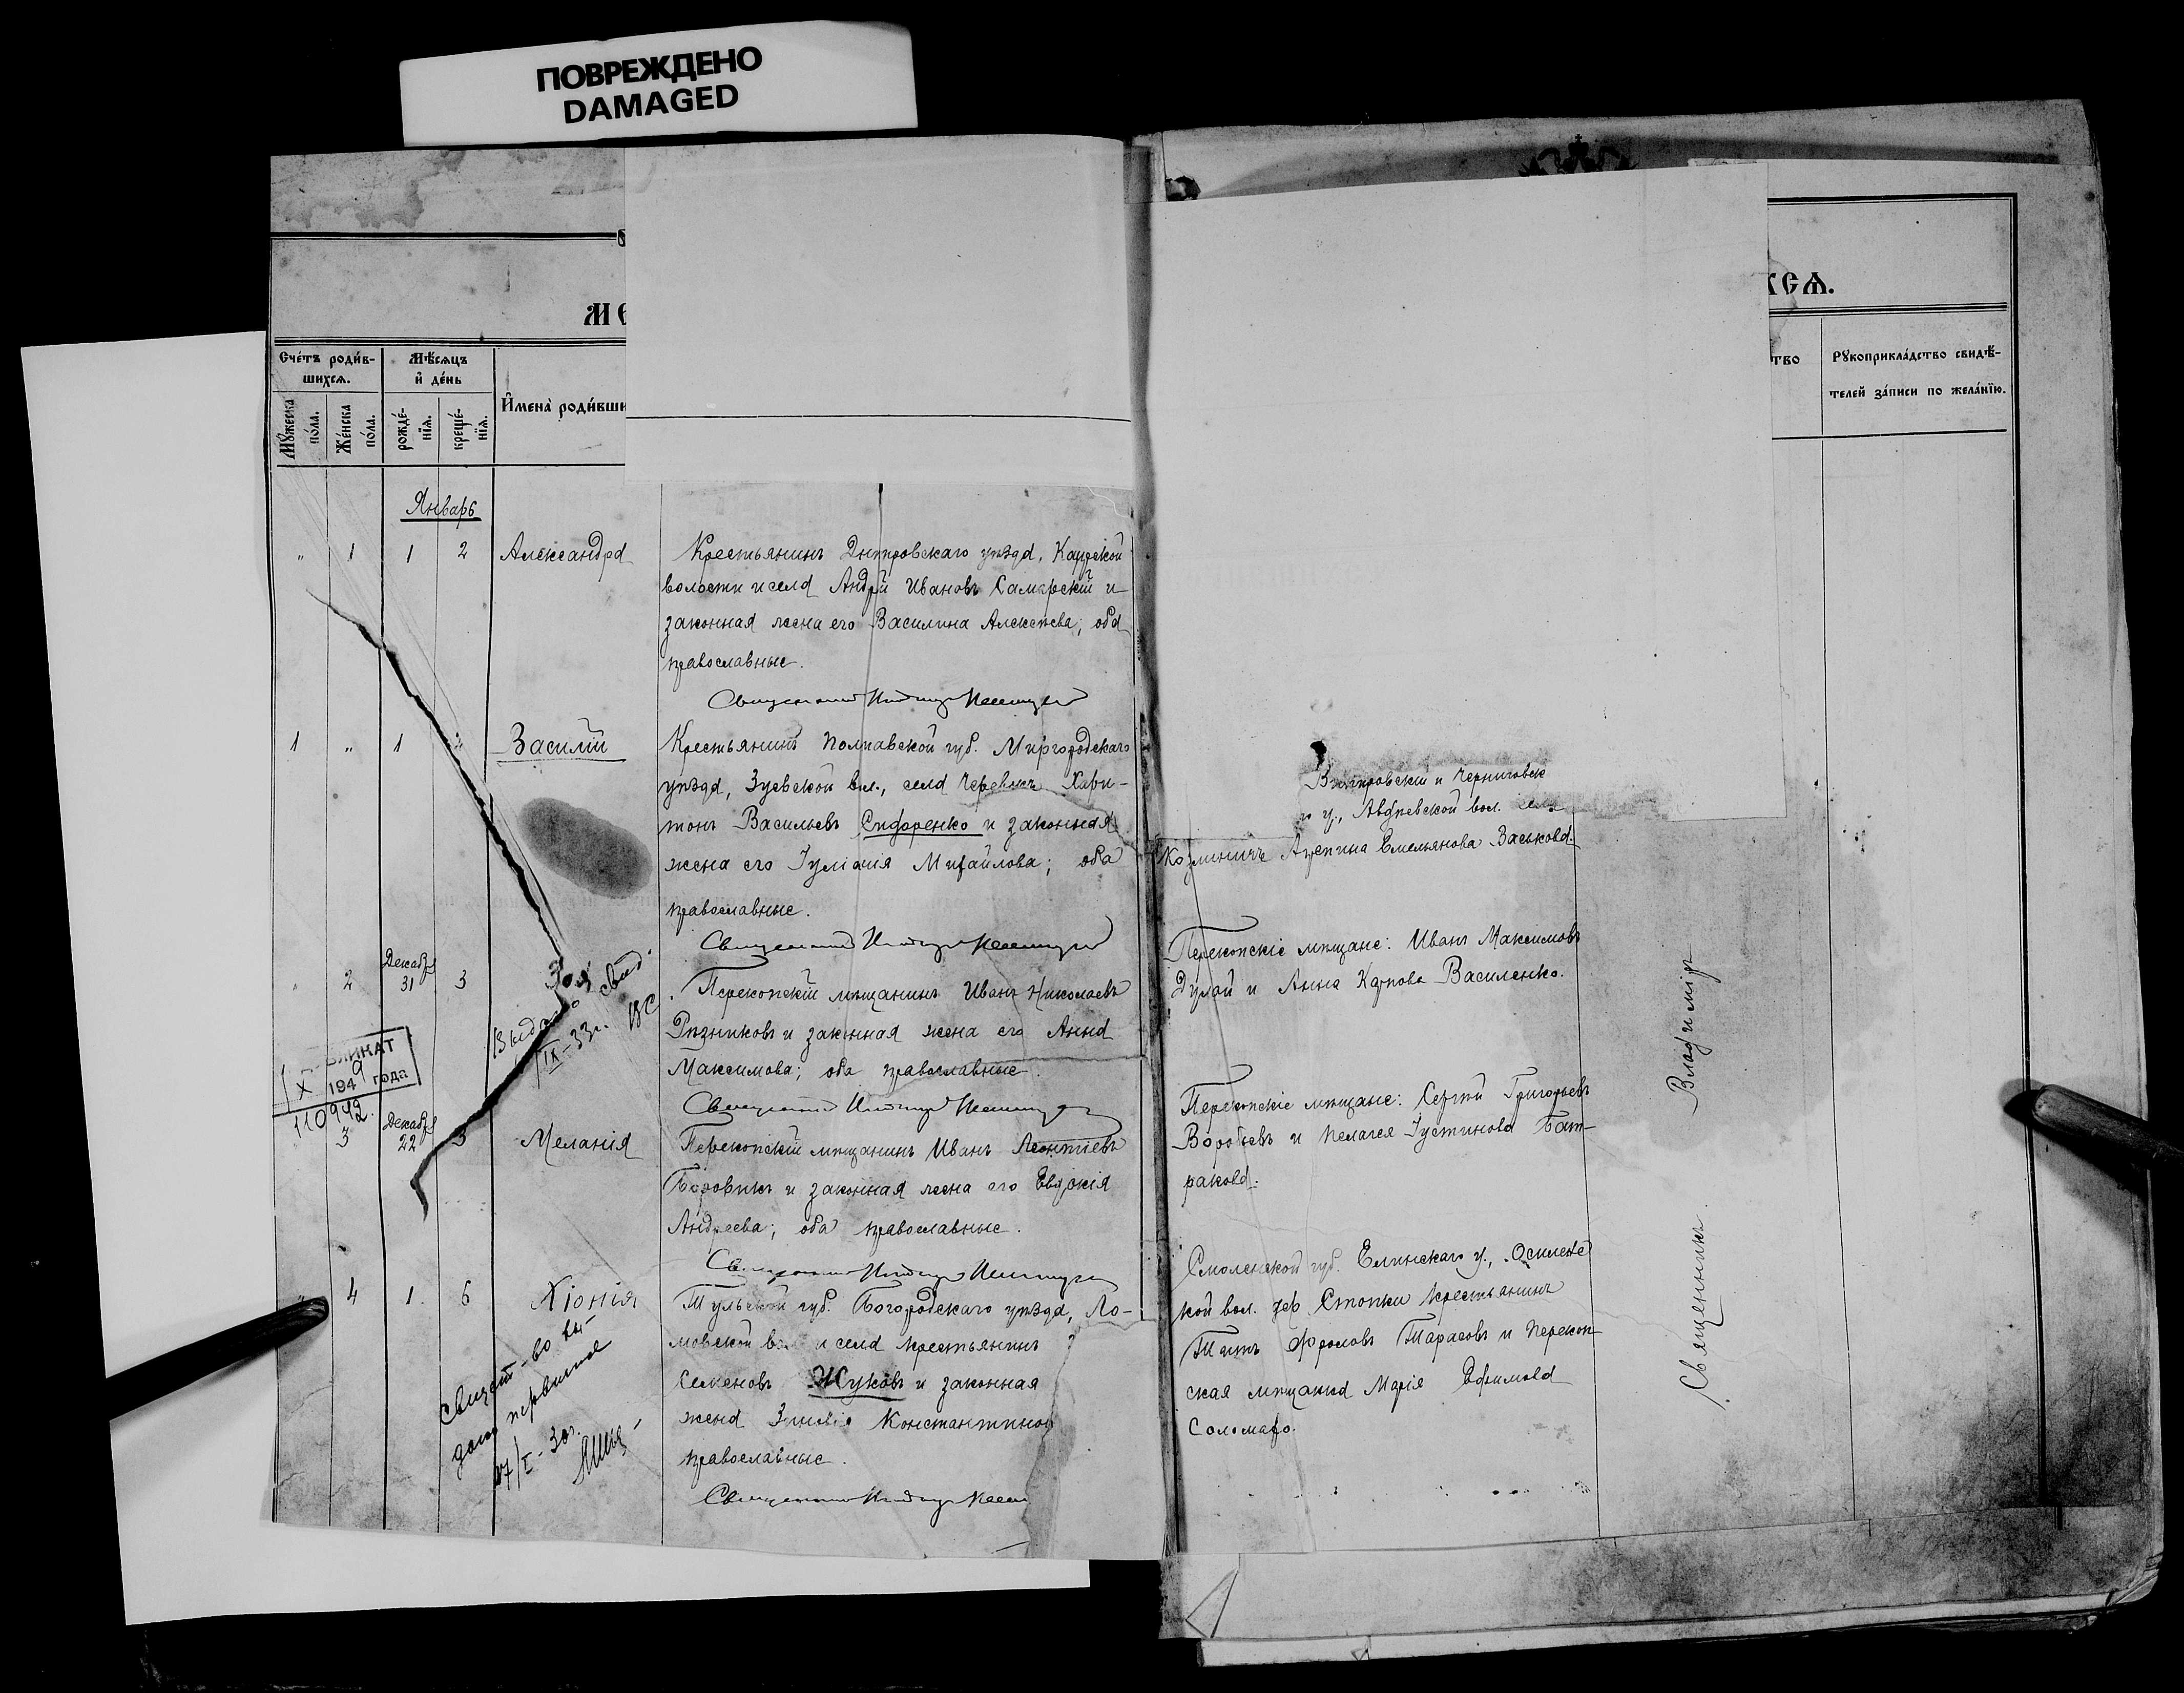 ПОВРЕЖДЕНО
DAMAGED
МЕ
Сче́тъ роди́в-
шихсѧ.
Мѣ́сѧцъ
и҆ де́нь
И҆мена̀ роди́вши
Мꙋ́жеска
по́ла.
Же́нска
по́ла.
рожде́-
нїѧ.
креще́-
нїѧ.
Январь
" 1 1 2 Александра
Крестьянинъ Днѣпровскаго уѣзда, Каирской
волости и села Андрей Ивановъ Самарскій и
законная жена его Василина Алексѣева; оба
православные.
Священникъ
1 " 1 Василій
Крестьянинъ Полтавской губ. Миргородскаго
уѣзда, Зуевской вол., села Черевкъ Хари-
тонъ Васильевъ Сидоренко и законная
жена его Іуліанія Михайлова; оба
православные.
Священникъ
" 2 Декабря 31 3 Зоя
свид.
IX-33г.
Перекопскій мѣщанинъ Иванъ Николаевъ
Рѣзниковъ и законная жена его Анна
Максимова; оба православные.
Священникъ
ЛИКАТ
X 1949 года
110942.
3 Декабря 22 3 Меланія
Перекопскій мѣщанинъ Иванъ Леонтіевъ
Боровикъ и законная жена его Евдокія
Андреева; оба православные.
Священникъ
" 4 1 6 Хіонія
Свидет-во вы-
дано первичное
27/I-30г.
Тульской губ. Богородскаго уѣзда, Ло-
мовской вол и села крестьянинъ
Семеновъ Жуковъ и законная
жена Константинов
православные.
Священникъ
ХСѦ.
тво
Рꙋкоприкла́дство свидѣ́-
телей за́писи по жела́нїю.
и Черниговск
у., Авдѣевской вол. села
Козлиничъ Емельянова Заськова.
Перекопскіе мѣщане: Иванъ Максимовъ
Дулай и Анна Карпова Василенко.
Перекопскіе мѣщане: Сергѣй Григорьевъ
Воробьевъ и Пелагея Іустинова Бат-
ракова.
Смоленской губ. Елинскаго у.,
кой вол. дер Стопки крестьянинъ
Титъ Фроловъ Тарасовъ и Перекоп-
ская мѣщанка Марія Ефимова
Соломаго.
Священникъ
Владиміръ